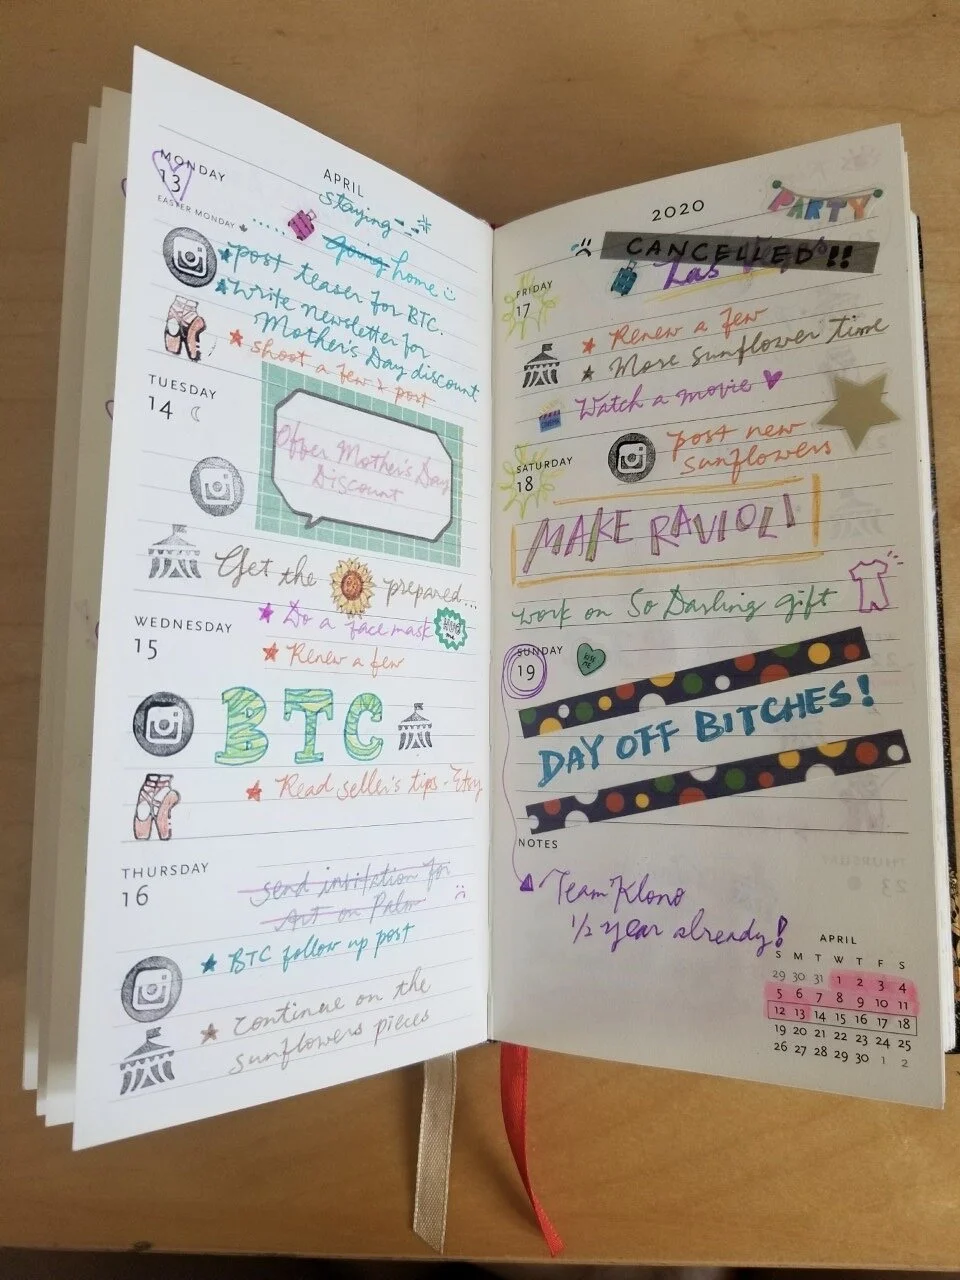 APRIL
MONDAY
13
EASTER MONDAY
staying
going home
post teaser for BTC.
Write newsletter for
Mother's Day discount
shoot a few & post
TUESDAY
14
Offer Mother's Day
Discount
Get the prepared...
WEDNESDAY
15
Do a face mask
Renew a few
BTC
Read seller's tips - Etsy
THURSDAY
16
send invitation for
Art on Palm
BTC follow up post
continue on the
sunflowers pieces
2020
PARTY
CANCELLED!!
Las
FRIDAY
17
Renew a few
More sunflower time
Watch a movie
SATURDAY
18
post new
sunflowers
MAKE RAVIOLI
work on So Darling gift
SUNDAY
19
DAY OFF BITCHES!
NOTES
Team Klono
1/2 year already!
APRIL
S M T W T F S
29 30 31 1 2 3 4
5 6 7 8 9 10 11
12 13 14 15 16 17 18
19 20 21 22 23 24 25
26 27 28 29 30 1 2